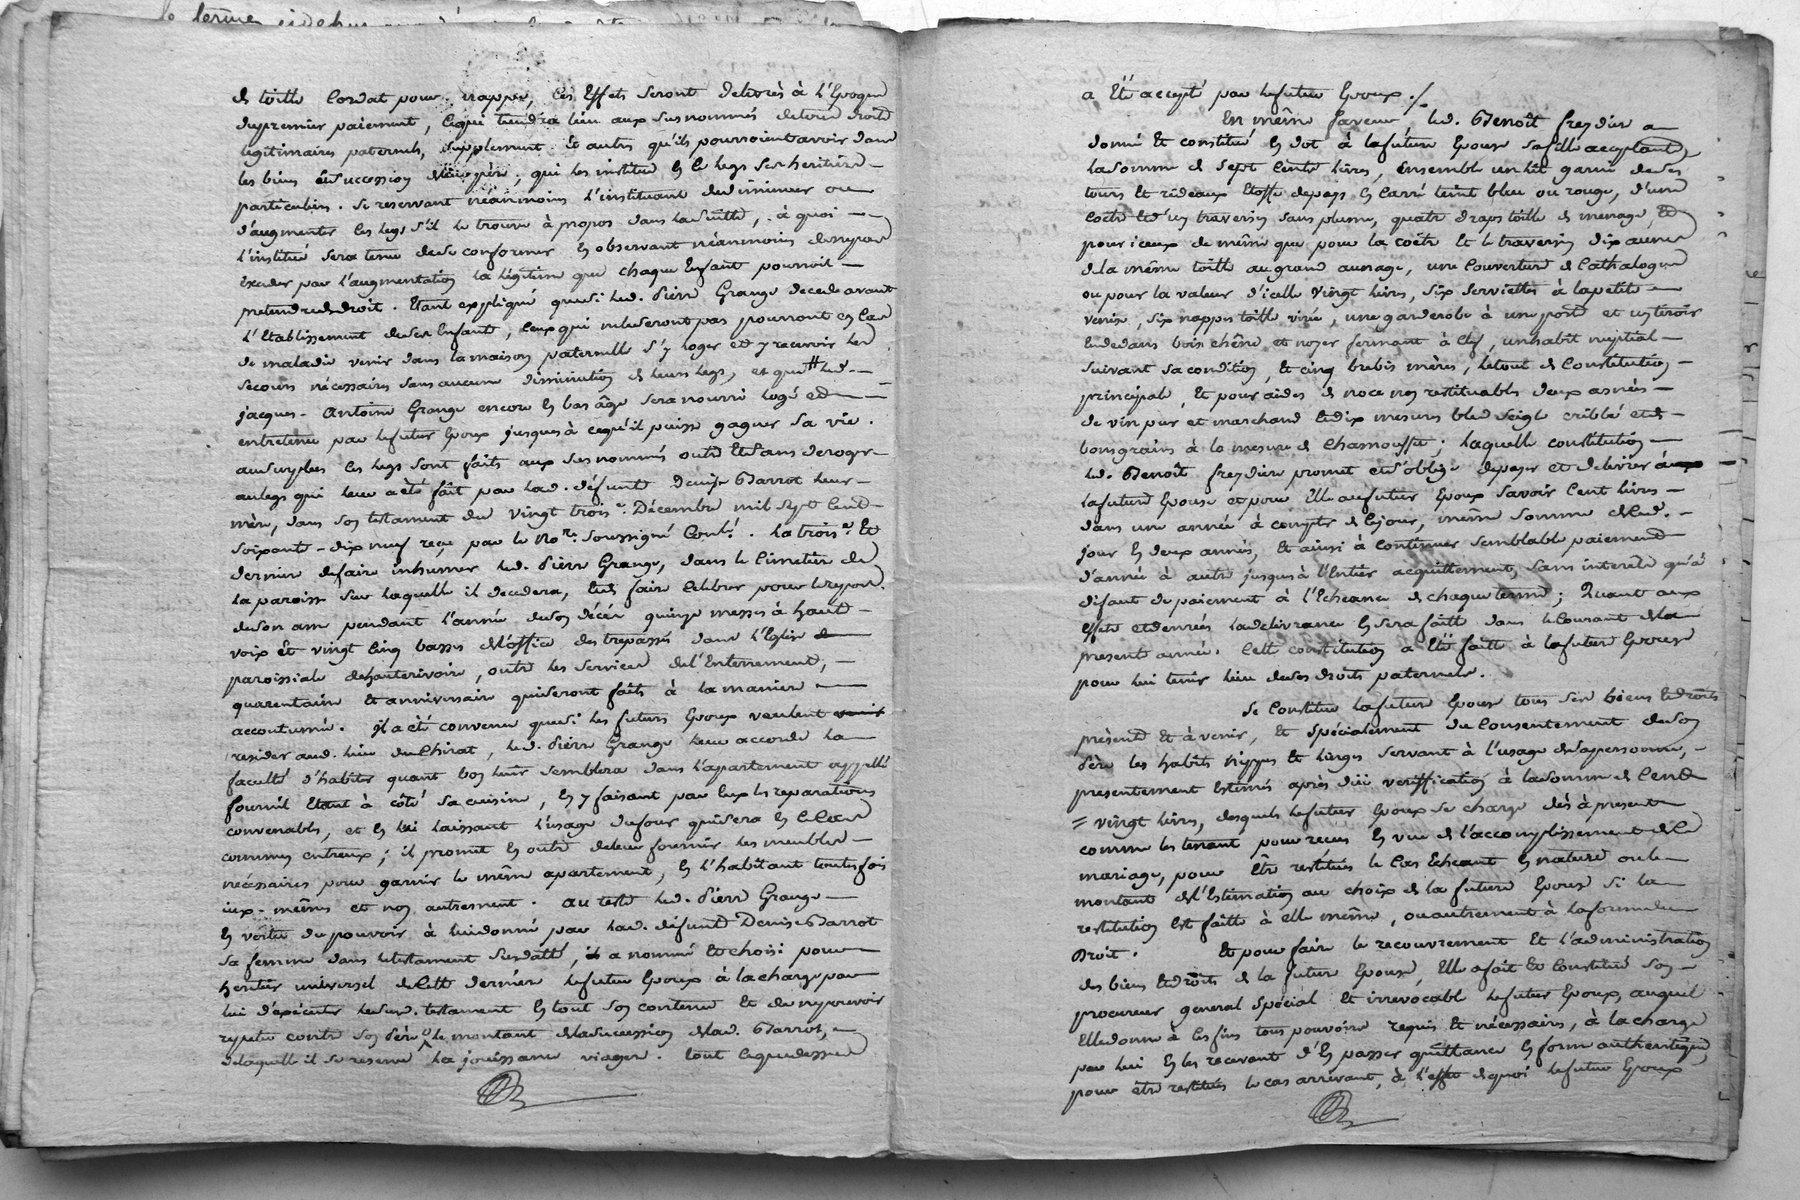 le terme
de toille cordat pour nappes, ces Effets seront delivrés à l'Epoque
du premier paiement, ce qui tiendra lieu aux susnommés de tous droits
legitimaires paternels, supplement et autres qu'ils pourroient avoir dans
les biens et succession du père, qui les institue en ce legs ses heritiers
particuliers. Se reservant néanmoins l'instituant de diminuer ou
d'augmenter les legs s'il le trouve à propos dans la suitte, à quoi
l'institué sera tenu de se conformer en observant néanmoins de ne pas
Exceder par l'augmentation la légitime que chaque Enfant pourroit
pretendre de droit. Etant expliqué que si led. Pierre Grange decede avant
l'Etablissement de ses Enfants, ceux qui ne le seront pas pourront en cas
de maladie venir dans la maison paternelle s'y loger et y recevoir les
secours nécessaires sans aucune diminution de leurs legs, et que led.
jacques-Antoine Grange encore en bas âge sera nourri logé et
entretenu par le futur Epoux jusques à ce qu'il puisse gagner sa vie.
au surplus les legs sont faits aux susnommés outre et sans deroger
au legs qui leur a été fait par lad. défunte Denise Barrot leur
mère, dans son testament du vingt trois.e Décembre mil sept cent
soixante-dix neuf reçu par le No.re soussigné Cont.é. La trois.e et
dernière de faire inhumer led. Pierre Grange, dans le Cimetière de
la paroisse sur laquelle il decedera, et de faire celebrer pour le repos
de son ame pendant l'année de son décès quinze messes à haute
voix et vingt cinq basses de l'office des trepassés dans l'Eglise
paroissiale de hauterivoire, outre les services de l'Enterrement,
quarentaine et anniversaire qui seront faits à la maniere
accoutumée. Il a été convenu que si les futurs Epoux veulent
resider aud. lieu du Chirat, led. Pierre Grange leur accorde la
faculté d'habiter quant bon leur semblera dans l'apartement appellé
fournil Etant à côté sa cuisine, en y faisant par eux les reparations
convenables, et en lui laissant l'usage du four qui sera en ce cas
commun entreux; il promet en outre de leur fournir les meubles
nécessaires pour garnir le même apartement, en l'habitant toutesfois
eux-mêmes et non autrement. Au reste led. Pierre Grange
en vertu du pouvoir à lui donné par lad. défunte Denise Barrot
sa femme dans le testament susdatté, a nommé et choisi pour
heritier universel de cette dernière le futur Epoux à la charge par
lui d'executer led. testament en tout son contenu et de ne pouvoir
repeter contre son Père le montant de la succession de lad. Barrot,
de laquelle il se reserve la jouissance viagere. tout ce que dessus
a Eté accepté par le futur Epoux ./.
En même faveur led. Benoît freydier a
donné et constitué en dot à la future Epouse sa fille acceptante
la somme de sept cents livres, Ensemble un lit garni de ses
tours et rideaux Etoffe de pays en carré teint bleu ou rouge, d'une
coëtre et d'un traversin sans plume, quatre draps toille de menage, et
pour iceux de même que pour la coëtre et le traversin dix aunes
de la même toille au grand aunage, une Couverture de Cathalogne
ou pour la valeur d'icelle Vingt livres, six serviettes à la petite
venise, six nappes toille, une garderobe à une porte et un tiroir
au dedans bois chêne et noyer fermant à clef, un habit nuptial
suivant sa condition, et cinq brebis mères, le tout de Constitution
principale, et pour aides de noce non restituables deux asnées
de vin pur et marchand et dix mesures bled seigle criblé et de
bons grains à la mesure de Chamousset; laquelle constitution
led. Benoît freydier promet et s'oblige de payer et delivrer
la future Epouse et pour Elle au futur Epoux savoir Cent livres
dans une année à compter de ce jour, même somme dud.
jour en deux années, et ainsi à continuer semblable paiement
d'année à autre jusques à l'Entier acquittement, sans interets qu'à
défaut de paiement à l'Echeance de chaque terme; Quant aux
effets et denrées la delivrance en sera faitte dans le Courant de la
presente année. Cette constitution a Eté faitte à la future Epouse
pour lui tenir lieu de ses droits paternels.
Se Constitue la future Epouse tous ses biens et droits
présents et à venir, et spécialement du Consentement de son
Père les habits nippes et linges servant à l'usage de sa personne,
presentement Estimés après due veriffication à la somme de Cent
= vingt livres, desquels le futur Epoux se charge dès à present
comme les tenant pour recus en vue de l'accomplissement dud.
mariage, pour Etre restitués le cas Echeant en nature ou le
montant de l'Estimation au choix de la future Epouse si la
restitution Est faitte à elle même, ou autrement à la forme du
Droit. Et pour faire le recouvrement et l'administration
des biens et droits de la future Epouse, Elle a fait et Constitué son
procureur general spécial et irrevocable le futur Epoux, auquel
Elle donne à ces fins tous pouvoirs requis et nécessaires, à la charge
par lui en les recevant d'en passer quittance en forme authentique,
pour être restitués le cas arrivant, à l'effet de quoi le futur Epoux